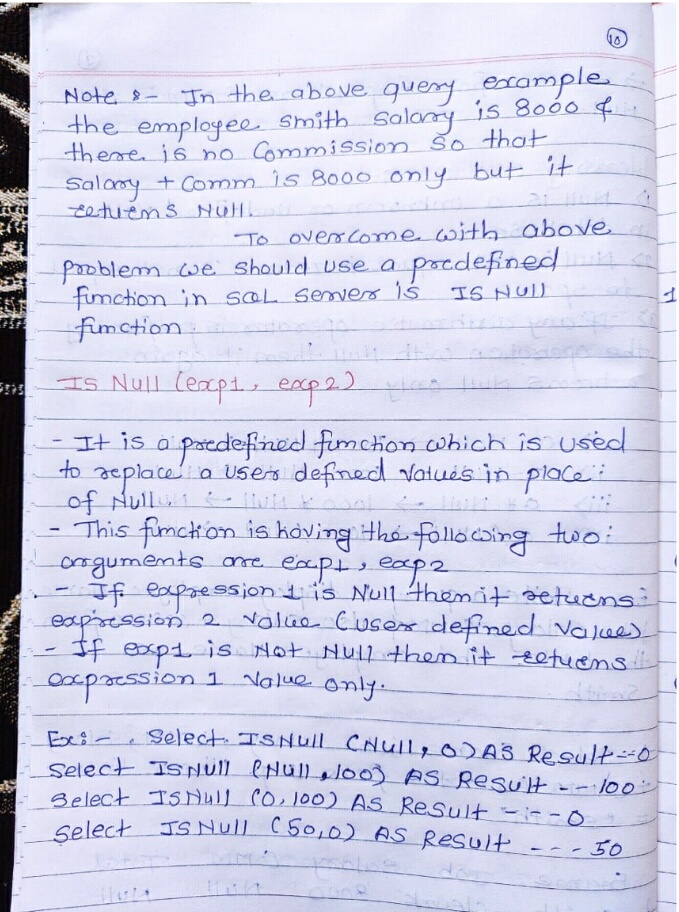 10
Note :- In the above query example
the employee smith salary is 8000 &
there is no Commission so that
salary + Comm is 8000 only but it
returns Null.
To overcome with above
problem we should use a predefined
function in SQL server is ISNull
function
IS Null (exp1, exp2)
- It is a predefined function which is used
to replace a user defined values in place
of Null.
- This function is having the following two
arguments are exp1, exp2
- If expression 1 is Null then it returns
expression 2 value (user defined value)
- If exp1 is Not Null then it returns
expression 1 value only.
Ex:- Select ISNull (Null, 0) AS Result --0
Select ISNull (Null, 100) AS Result -- 100
Select ISNull (0, 100) AS Result --- 0
Select ISNull (50,0) AS Result --- 50